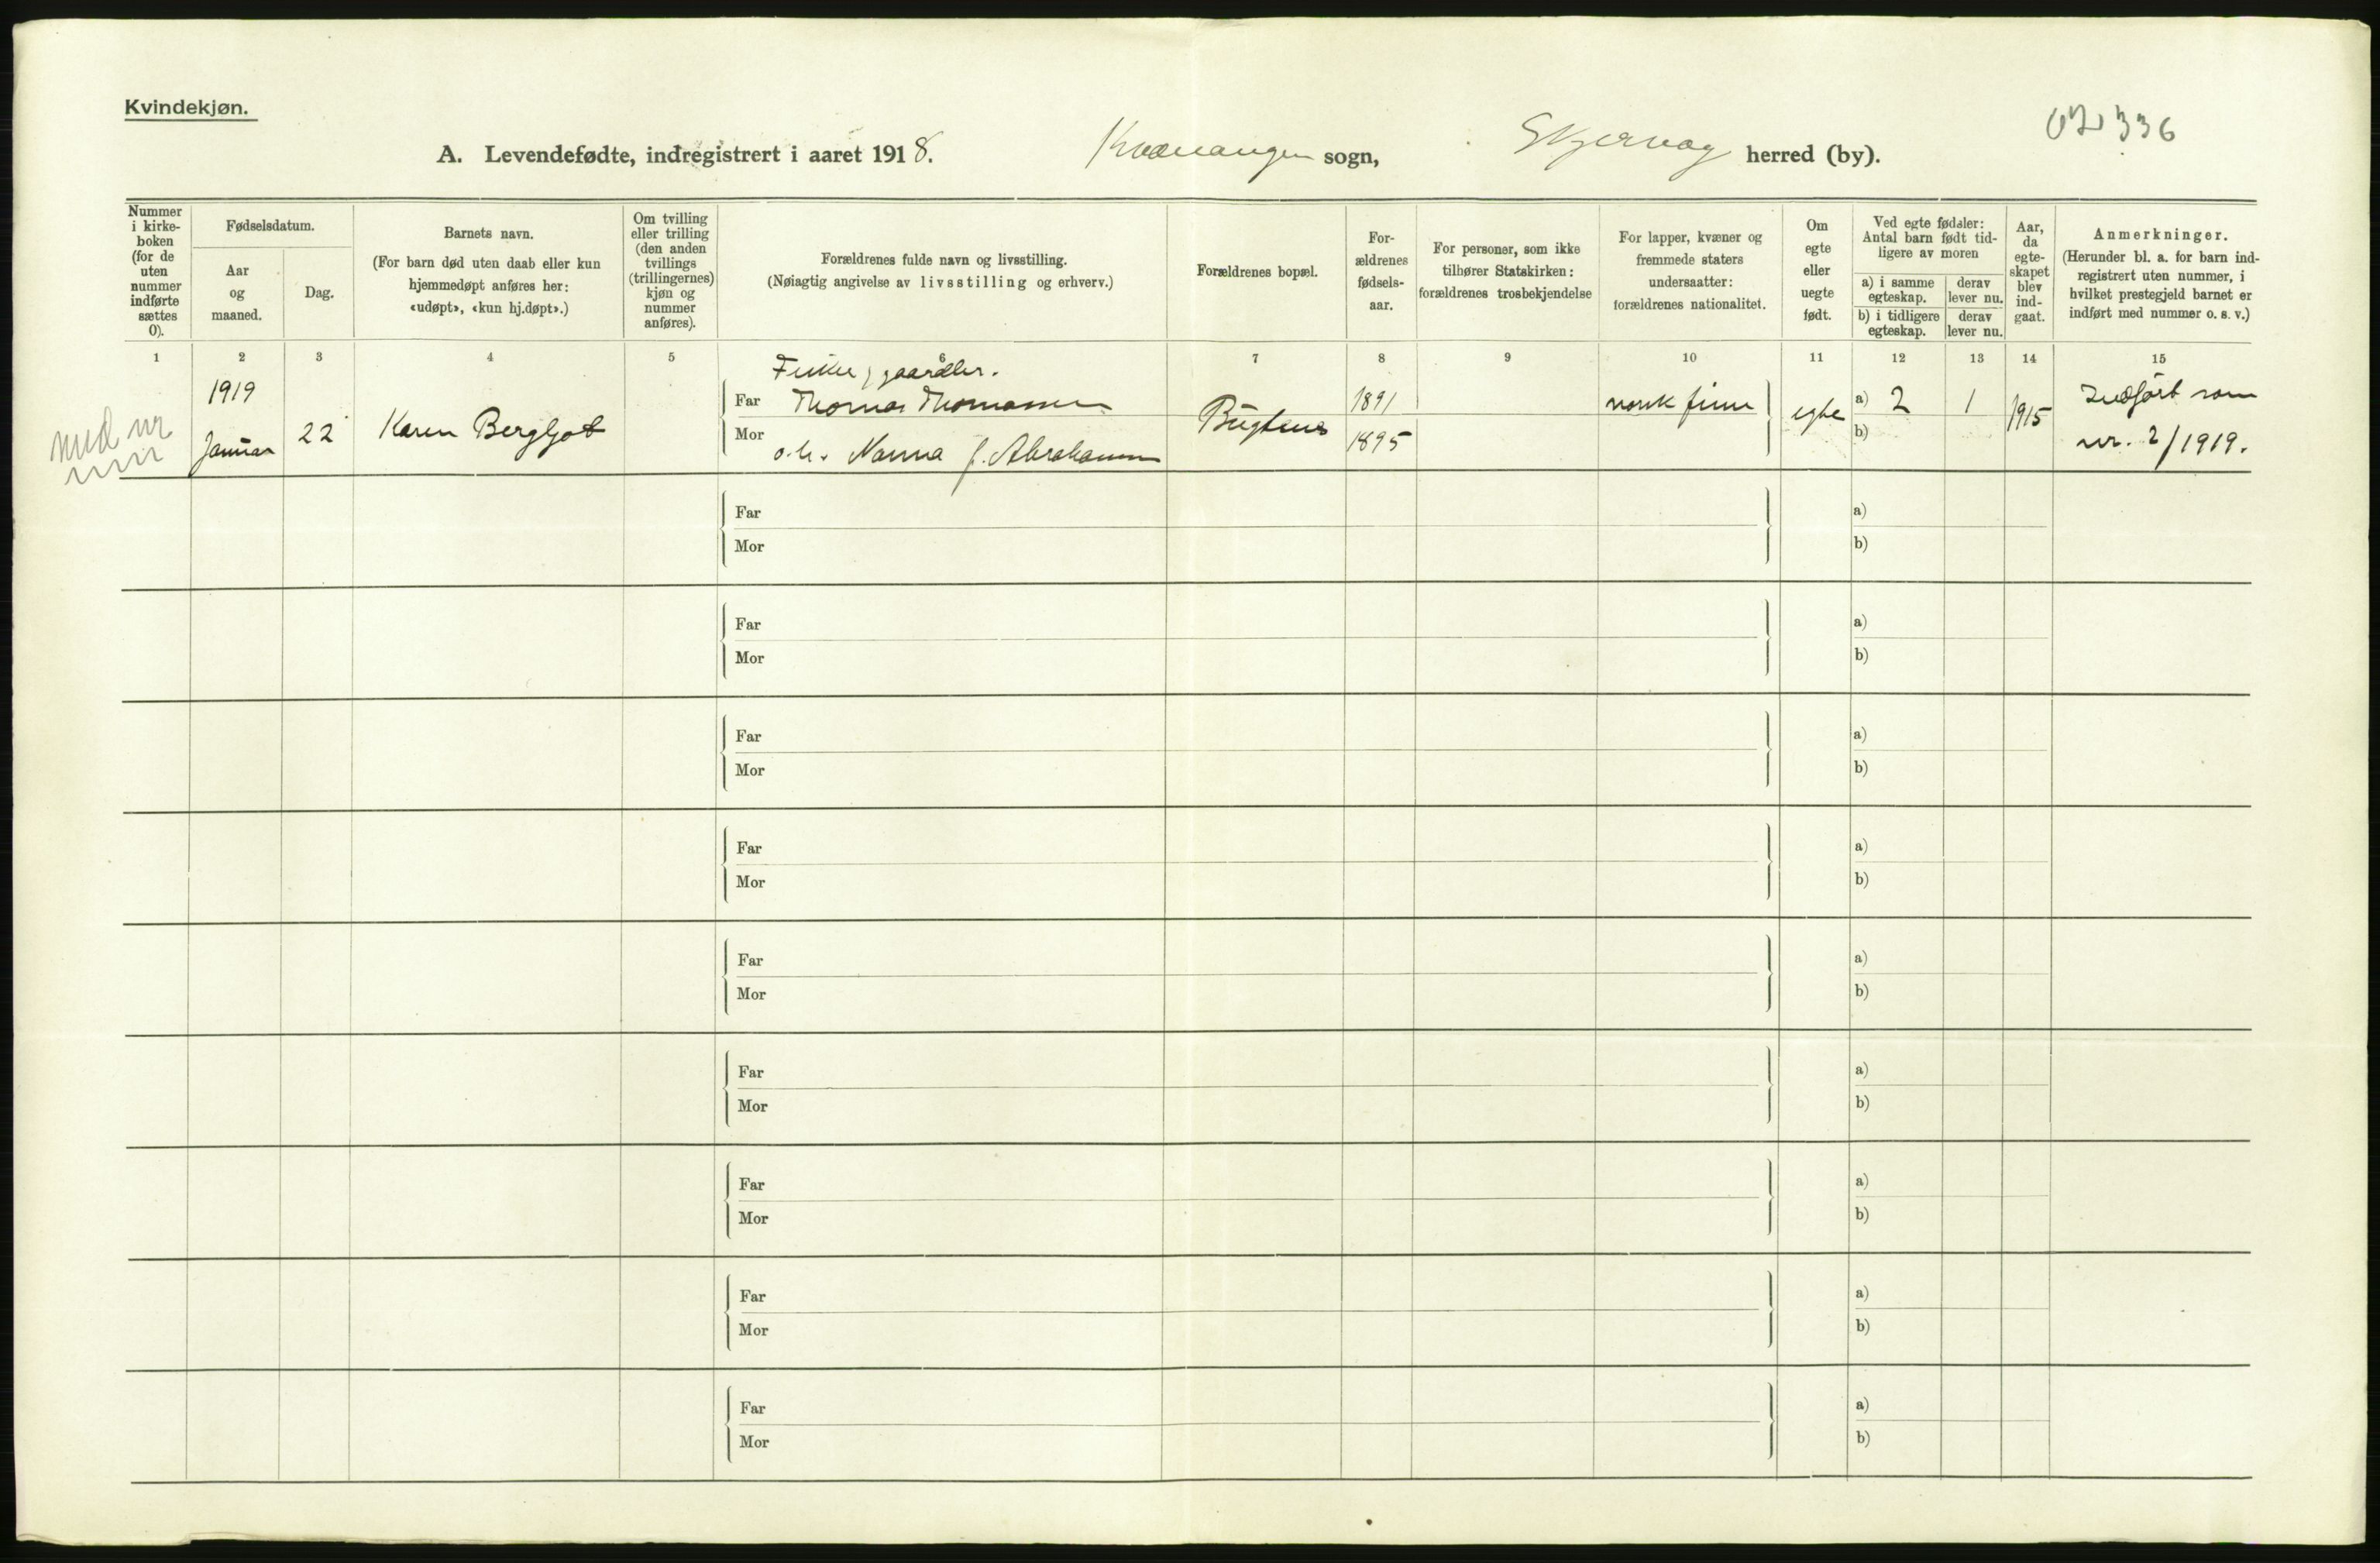 Kvindekjøn.
A. Levendefødte, indregistrert i aaret 1918. Kvænangen sogn, Skjervøy herred (by).
336
Nummer i kirke-boken (for de uten nummer indførte sættes 0).
Fødselsdatum.
Aar og maaned.
Dag.
Barnets navn.
(For barn død uten daab eller kun hjemmedøpt anføres her: «udøpt», «kun hj.døpt».)
Om tvilling eller trilling (den anden tvillings (trillingernes) kjøn og nummer anføres).
Forældrenes fulde navn og livsstilling.
(Nøiagtig angivelse av livsstilling og erhverv.)
Forældrenes bopæl.
For-ældrenes fødsels-aar.
For personer, som ikke tilhører Statskirken: forældrenes trosbekjendelse
For lapper, kvæner og fremmede staters undersaatter: forældrenes nationalitet.
Om egte eller uegte født.
Ved egte fødsler: Antal barn født tid-ligere av moren
a) i samme egteskap.
derav lever nu.
b) i tidligere egteskap.
derav lever nu.
Aar, da egte-skapet blev ind-gaat.
Anmerkninger.
(Herunder bl. a. for barn ind-registrert uten nummer, i hvilket prestegjeld barnet er indført med nummer o. s. v.)
1 2 3 4 5 6 7 8 9 10 11 12 13 14 15
med nr
1919 Januar 22 Karen Bergljot
Fisker, gaardbr.
Far Thomas Thomassen
Mor o. h. Nanna f. Abrahamsen
1891
1895
norsk finn
egte
a) 2 1
b)
1915
Indført som
nr. 2/1919.
Far a)
Mor b)
Far a)
Mor b)
Far a)
Mor b)
Far a)
Mor b)
Far a)
Mor b)
Far a)
Mor b)
Far a)
Mor b)
Far a)
Mor b)
Far a)
Mor b)